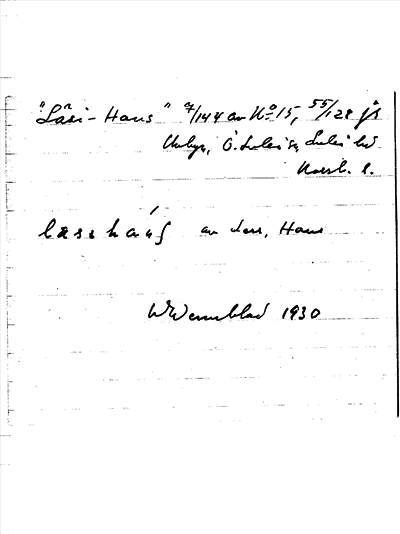 "Lässi-Hans" 9/144 av No 15, 55/128 js
Unbyn, Ö. Luleå sn, Luleå
Norrb. l.
av Lars, Hans
W Wennblad 1930